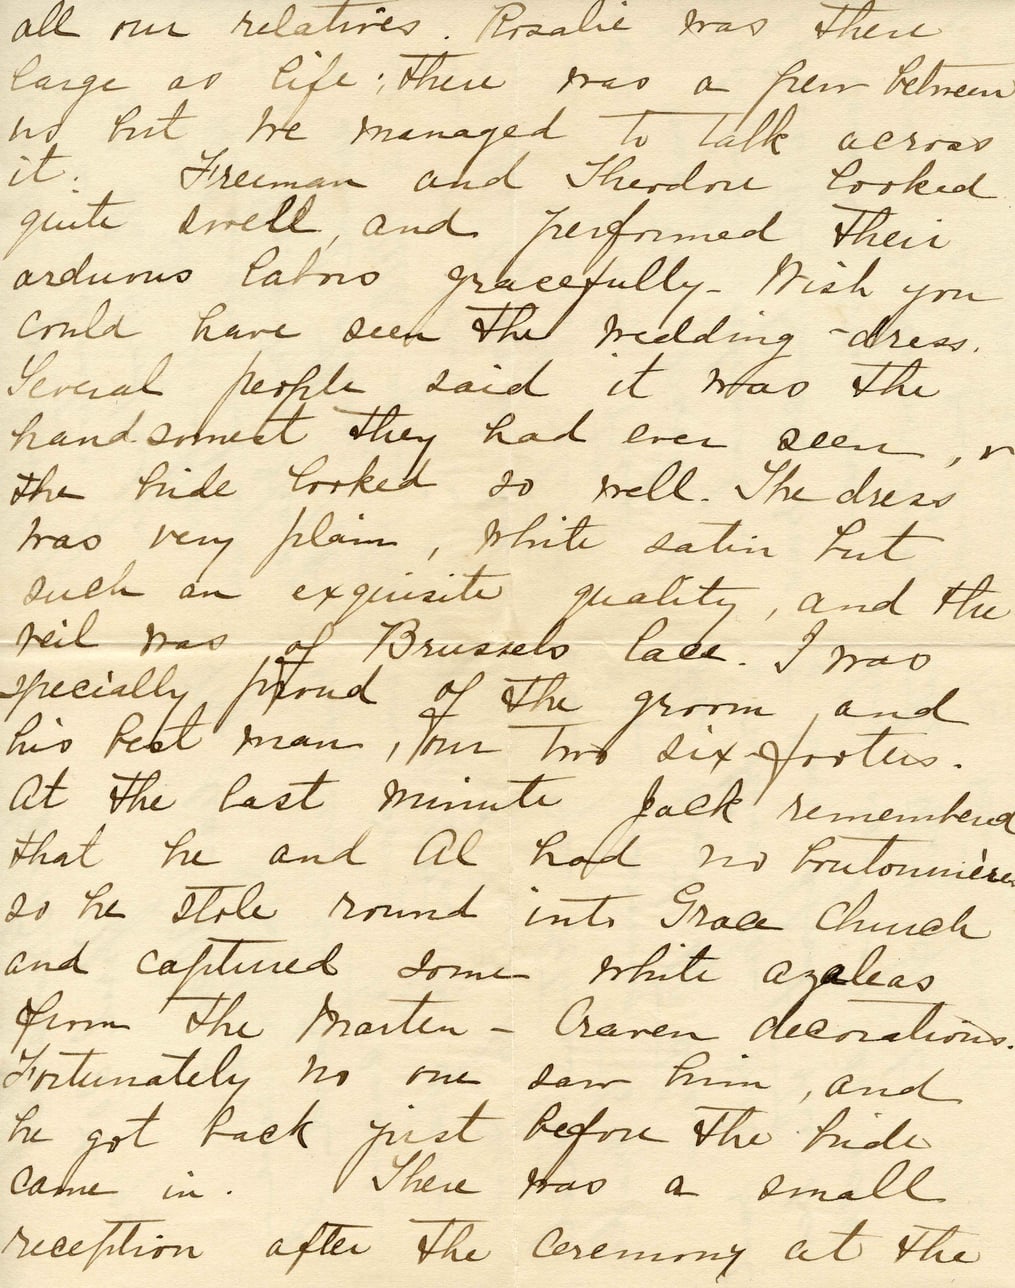 all our relatives. Rosalie was there
large as life; there was a pew between
us but we managed to talk across
it. Freeman and Theodore looked
quite swell, and performed their
arduous labors gracefully - Wish you
could have seen the wedding-dress.
Several people said it was the
handsomest they had ever seen, &
the bride looked so well. The dress
was very plain, white satin but
such an exquisite quality, and the
veil was of Brussels lace. I was
specially proud of the groom and
his best man, our two six-footers.
At the last minute Jack remembered
that he and Al had no boutonnières
so he stole round into Grace Church
and captured some white azaleas
from the Marten - Craven decorations.
Fortunately no one saw him, and
he got back just before the bride
came in. There was a small
reception after the ceremony at the